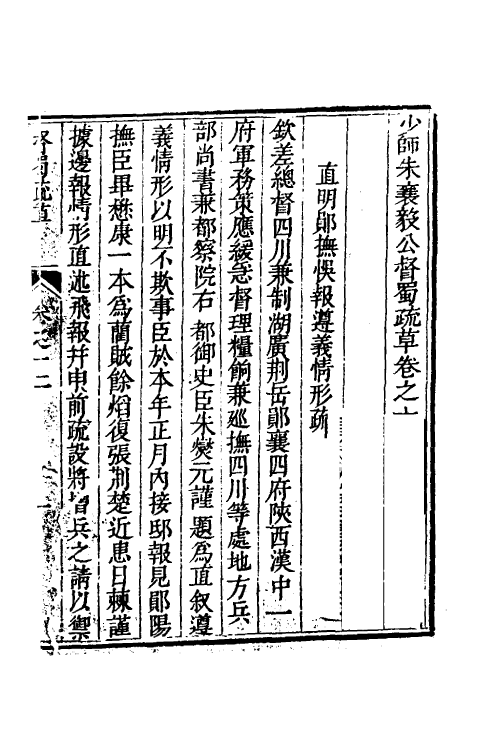 少師朱襄毅公督蜀疏草卷之十
直明鄖撫悞報遵義情形疏
欽差總督四川兼制湖廣荆岳鄖襄四府陝西漢中一
府軍務策應緩急督理糧餉兼廵撫四川等處地方兵
部尚書兼都察院右都御史臣朱燮元謹題為直叙遵
義情形以明不欺事臣於本年正月內接邸報見鄖陽
撫臣畢懋康一本為藺賊餘熖復張荆楚近患日棘謹
據邊報情形直述飛報幷申前疏設將增兵之請以禦
督蜀疏草
卷之十